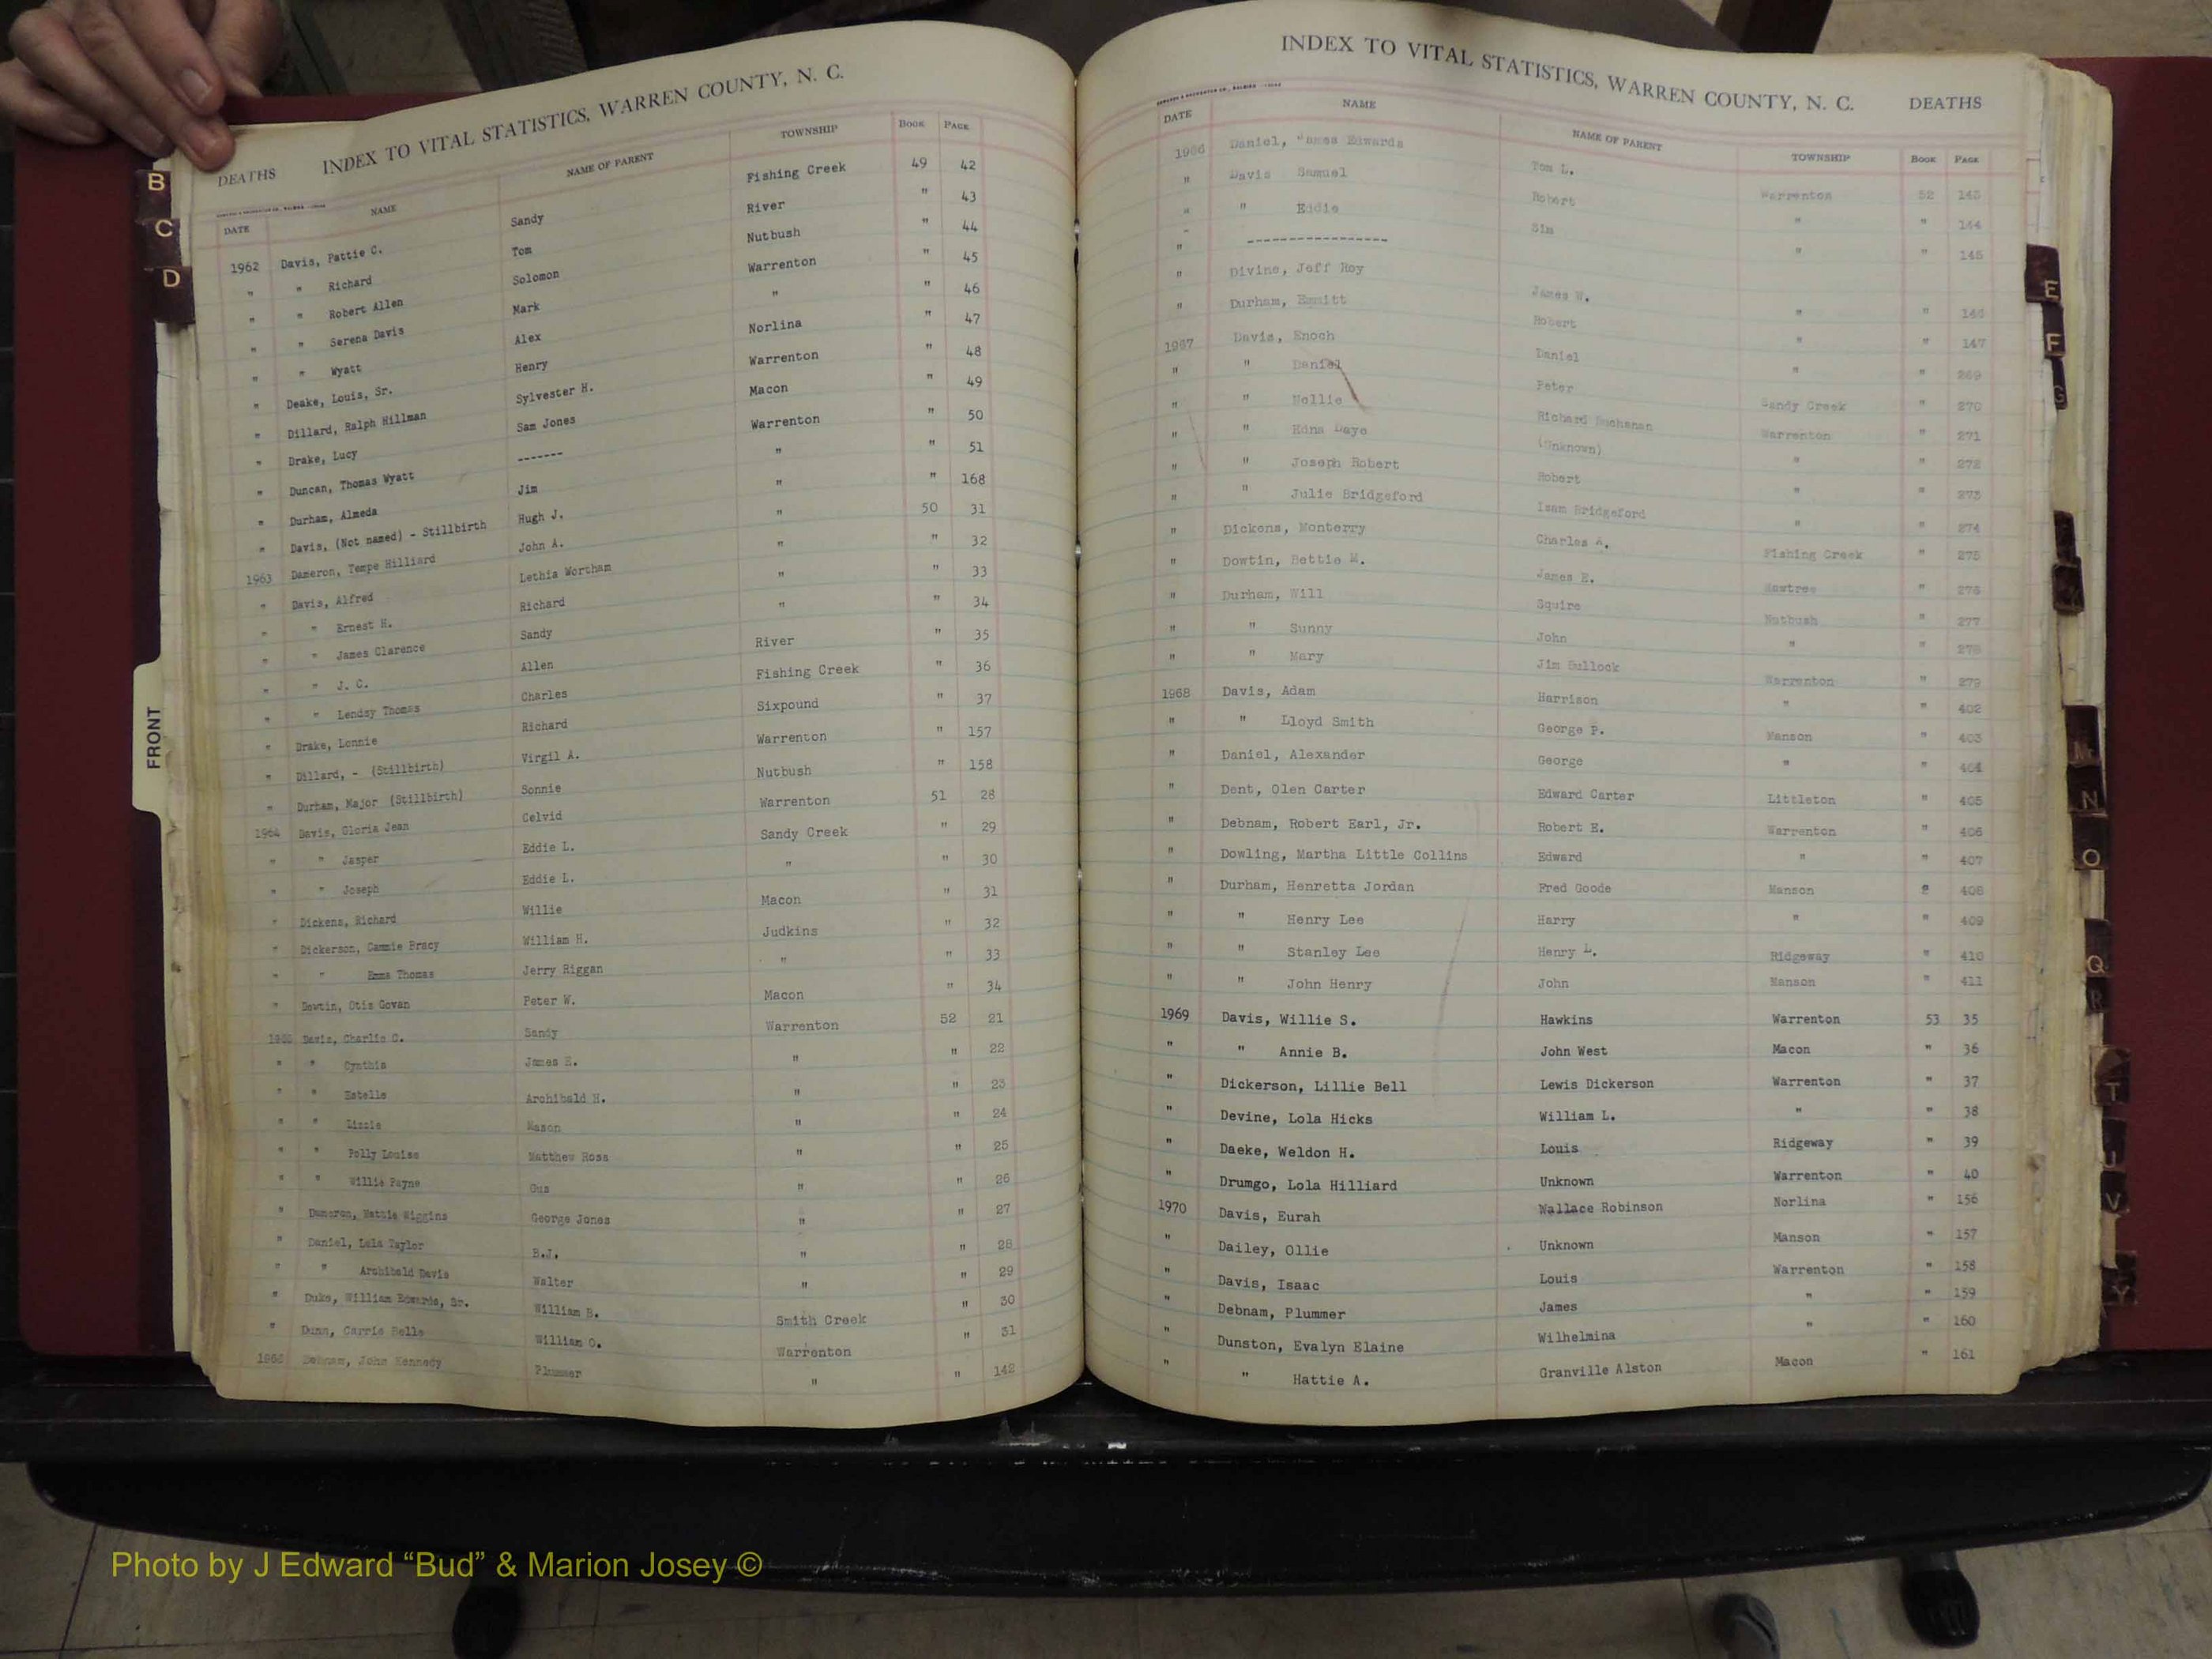 INDEX TO VITAL STATISTICS, WARREN COUNTY, N. C.
DEATHS
DATE NAME NAME OF PARENT TOWNSHIP BOOK PAGE
1962 Davis, Pattie C. Sandy Fishing Creek 49 42
" " Richard Tom River " 43
" " Robert Allen Solomon Nutbush " 44
" " Serena Davis Mark Warrenton " 45
" " Wyatt Alex " " 46
" Deake, Louis, Sr. Henry Norlina " 47
" Dillard, Ralph Hillman Sylvester H. Warrenton " 48
" Drake, Lucy Sam Jones Macon " 49
" Duncan, Thomas Wyatt ------- Warrenton " 50
" Durham, Almeda Jim " " 51
" Davis, (Not named) - Stillbirth Hugh J. " " 168
1963 Dameron, Tempe Hilliard John A. " 50 31
" Davis, Alfred Lethia Wortham " " 32
" " Ernest H. Richard " " 33
" " James Clarence Sandy " " 34
" " J. C. Allen River " 35
" " Lendsy Thomas Charles Fishing Creek " 36
" Drake, Lonnie Richard Sixpound " 37
" Dillard, - (Stillbirth) Virgil A. Warrenton " 157
" Durham, Major (Stillbirth) Sonnie Nutbush " 158
1964 Davis, Gloria Jean Celvid Warrenton 51 28
" " Jasper Eddie L. Sandy Creek " 29
" " Joseph Eddie L. " " 30
" Dickens, Richard Willie Macon " 31
" Dickerson, Cammie Bracy William H. Judkins " 32
" " Emma Thomas Jerry Riggan " " 33
" Dowtin, Otis Govan Peter W. Macon " 34
1965 Davis, Charlie C. Sandy Warrenton 52 21
" " Cynthia James E. " " 22
" " Estelle Archibald H. " " 23
" " Lizzie Mason " " 24
" " Polly Louise Matthew Ross " " 25
" " Willie Payne Gus " " 26
" Dameron, Mattie Wiggins George Jones " " 27
" Daniel, Lula Taylor B.J. " " 28
" " Archibald Davis Walter " " 29
" Duke, William Edwards, Sr. William B. Smith Creek " 30
" Dunn, Carrie Belle William O. Warrenton " 31
1966 Debnam, John Kennedy Plummer " " 142
INDEX TO VITAL STATISTICS, WARREN COUNTY, N. C. DEATHS
DATE NAME NAME OF PARENT TOWNSHIP BOOK PAGE
1966 Daniel, James Edwards Tom L. Warrenton 52 143
" Davis Samuel Robert " " 144
" " Eddie Sim " " 145
" -----------------
" Divine, Jeff Roy James W. " " 146
" Durham, Emmitt Robert " " 147
1967 Davis, Enoch Daniel " " 269
" " Daniel Peter Sandy Creek " 270
" " Nellie Richard Buchanan Warrenton " 271
" " Edna Daye (Unknown) " " 272
" " Joseph Robert Robert " " 273
" " Julie Bridgeford Isam Bridgeford " " 274
" Dickens, Monterry Charles A. Fishing Creek " 275
" Dowtin, Bettie M. James E. Hawtree " 276
" Durham, Will Squire Nutbush " 277
" " Sunny John " " 278
" " Mary Jim Bullock Warrenton " 279
1968 Davis, Adam Harrison " " 402
" " Lloyd Smith George P. Manson " 403
" Daniel, Alexander George " " 404
" Dent, Olen Carter Edward Carter Littleton " 405
" Debnam, Robert Earl, Jr. Robert E. Warrenton " 406
" Dowling, Martha Little Collins Edward " " 407
" Durham, Henretta Jordan Fred Goode Manson " 408
" " Henry Lee Harry " " 409
" " Stanley Lee Henry L. Ridgeway " 410
" " John Henry John Manson " 411
1969 Davis, Willie S. Hawkins Warrenton 53 35
" " Annie B. John West Macon " 36
" Dickerson, Lillie Bell Lewis Dickerson Warrenton " 37
" Devine, Lola Hicks William L. " " 38
" Daeke, Weldon H. Louis Ridgeway " 39
" Drumgo, Lola Hilliard Unknown Warrenton " 40
1970 Davis, Eurah Wallace Robinson Norlina " 156
" Dailey, Ollie Unknown Manson " 157
" Davis, Isaac Louis Warrenton " 158
" Debnam, Plummer James " " 159
" Dunston, Evalyn Elaine Wilhelmina " " 160
" " Hattie A. Granville Alston Macon " 161
B
C
D
FRONT
E
F
G
N
O
Q
R
T
U
V
Y
Photo by J Edward “Bud” & Marion Josey ©